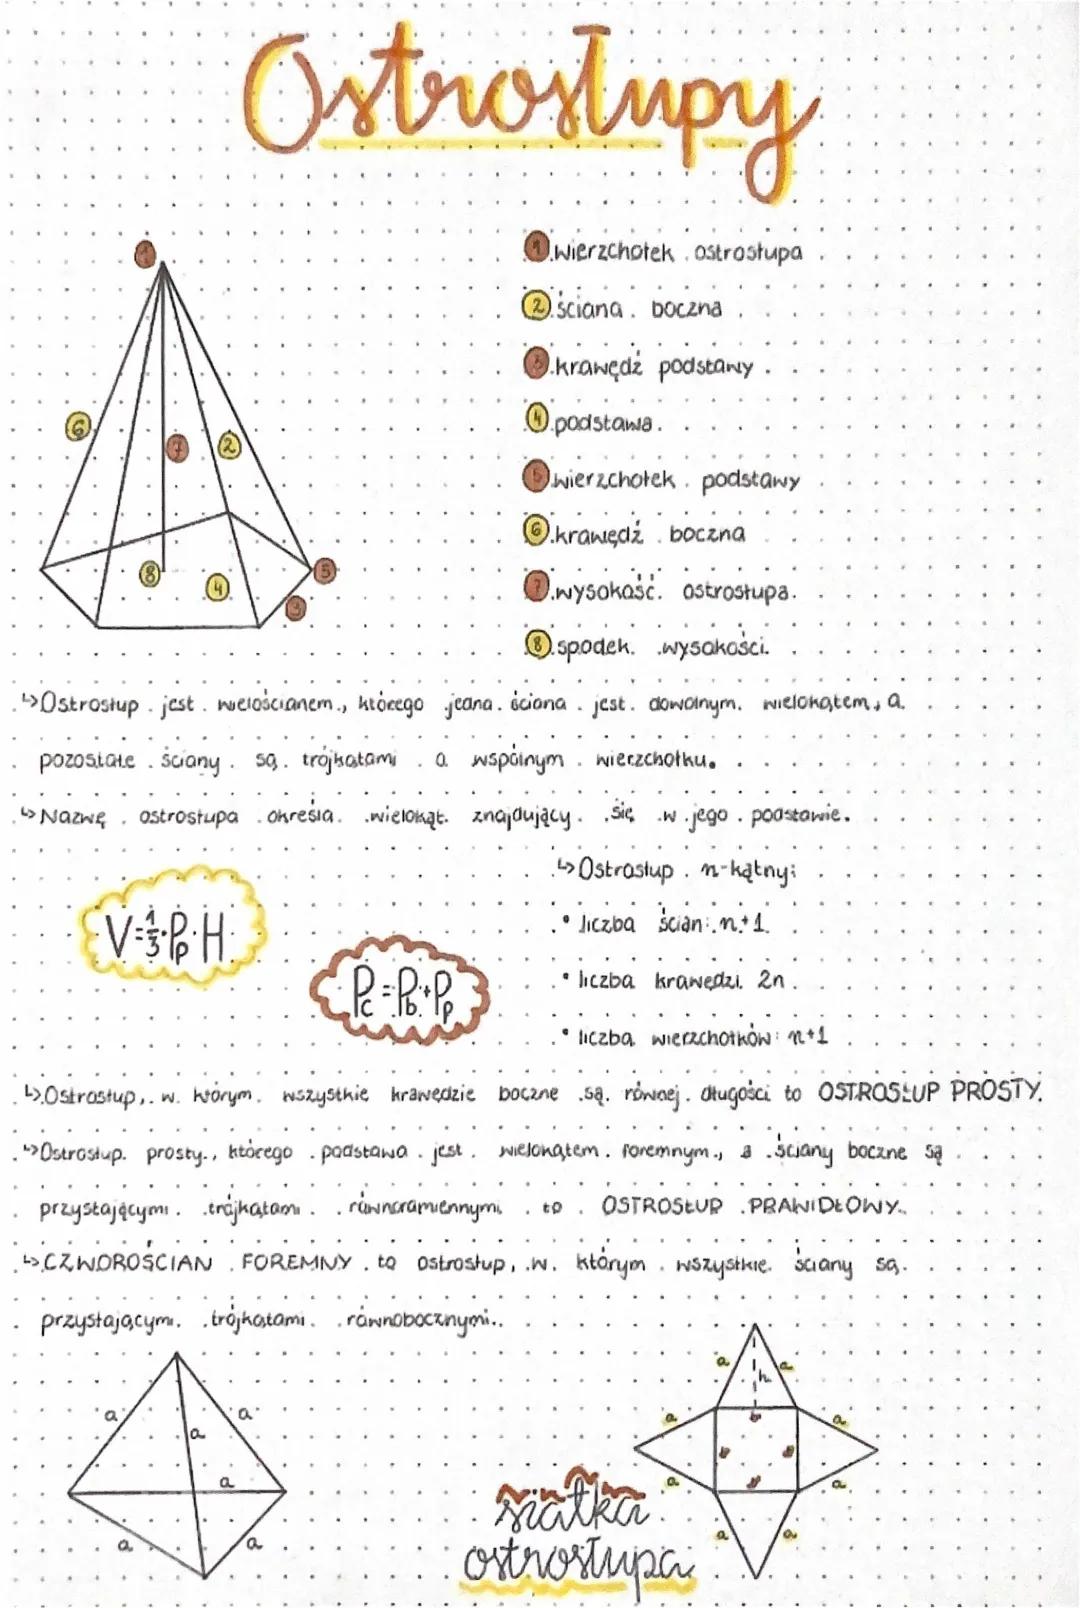 Ostrosłupy
1 wierzchołek ostrosłupa
2 ściana boczna
3 krawędź podstawy
4 podstawa
5 wierzchołek podstawy
6 krawędź boczna
7 wysokość ostrosłupa
8 spodek wysokości
1
6
7
2
8
4
5
3
↳Ostrosłup jest wielościanem, którego jedna ściana jest dowolnym wielokątem, a
pozostałe ściany są trójkątami o wspólnym wierzchołku.
↳Nazwę ostrosłupa określa wielokąt znajdujący się w jego podstawie.
↳Ostrosłup n-kątny:
V=⅓·Pp·H
• liczba ścian: n+1
Pc=Pb+Pp
• liczba krawędzi 2n
• liczba wierzchołków: n+1
↳Ostrosłup, w którym wszystkie krawędzie boczne są równej długości to OSTROSŁUP PROSTY.
↳Ostrosłup prosty, którego podstawa jest wielokątem foremnym, a ściany boczne są
przystającymi trójkątami równoramiennymi to OSTROSŁUP PRAWIDŁOWY.
↳CZWOROŚCIAN FOREMNY to ostrosłup, w którym wszystkie ściany są
przystającymi trójkątami równobocznymi.
a a
a
a
a a
a a
h
a a
b
b b
b
a a
a a
siatka
ostrosłupa